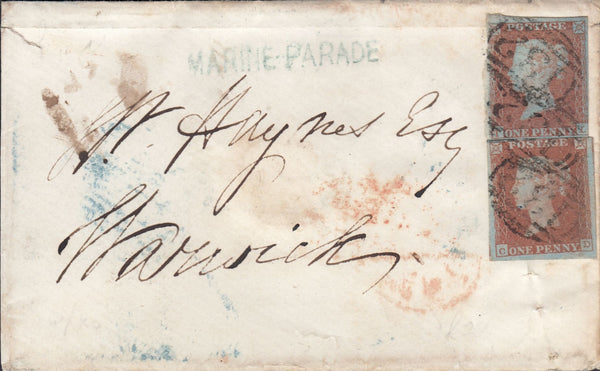 MARINE PARADE
POSTAGE
ONE PENNY
POSTAGE
C ONE PENNY D
Haynes Esq
Warwick